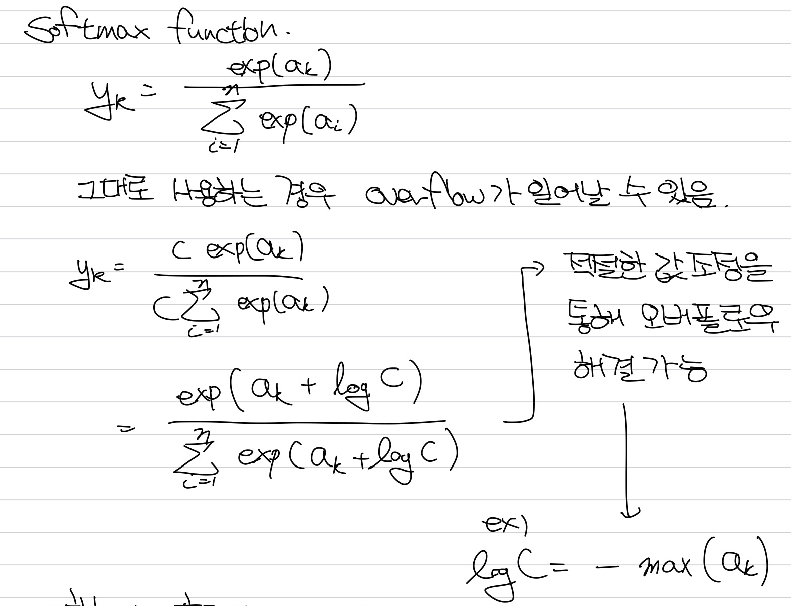 Softmax function.
y_k = exp(a_k) / Σ_{i=1}^{n} exp(a_i)
그대로 사용하는 경우 overflow가 일어날 수 있음.
y_k = C exp(a_k) / C Σ_{i=1}^{n} exp(a_k)
= exp(a_k + log C) / Σ_{i=1}^{n} exp(a_k + log C)
적절한 값 조정을
통해 오버플로우
해결 가능
ex)
log C = - max(a_k)